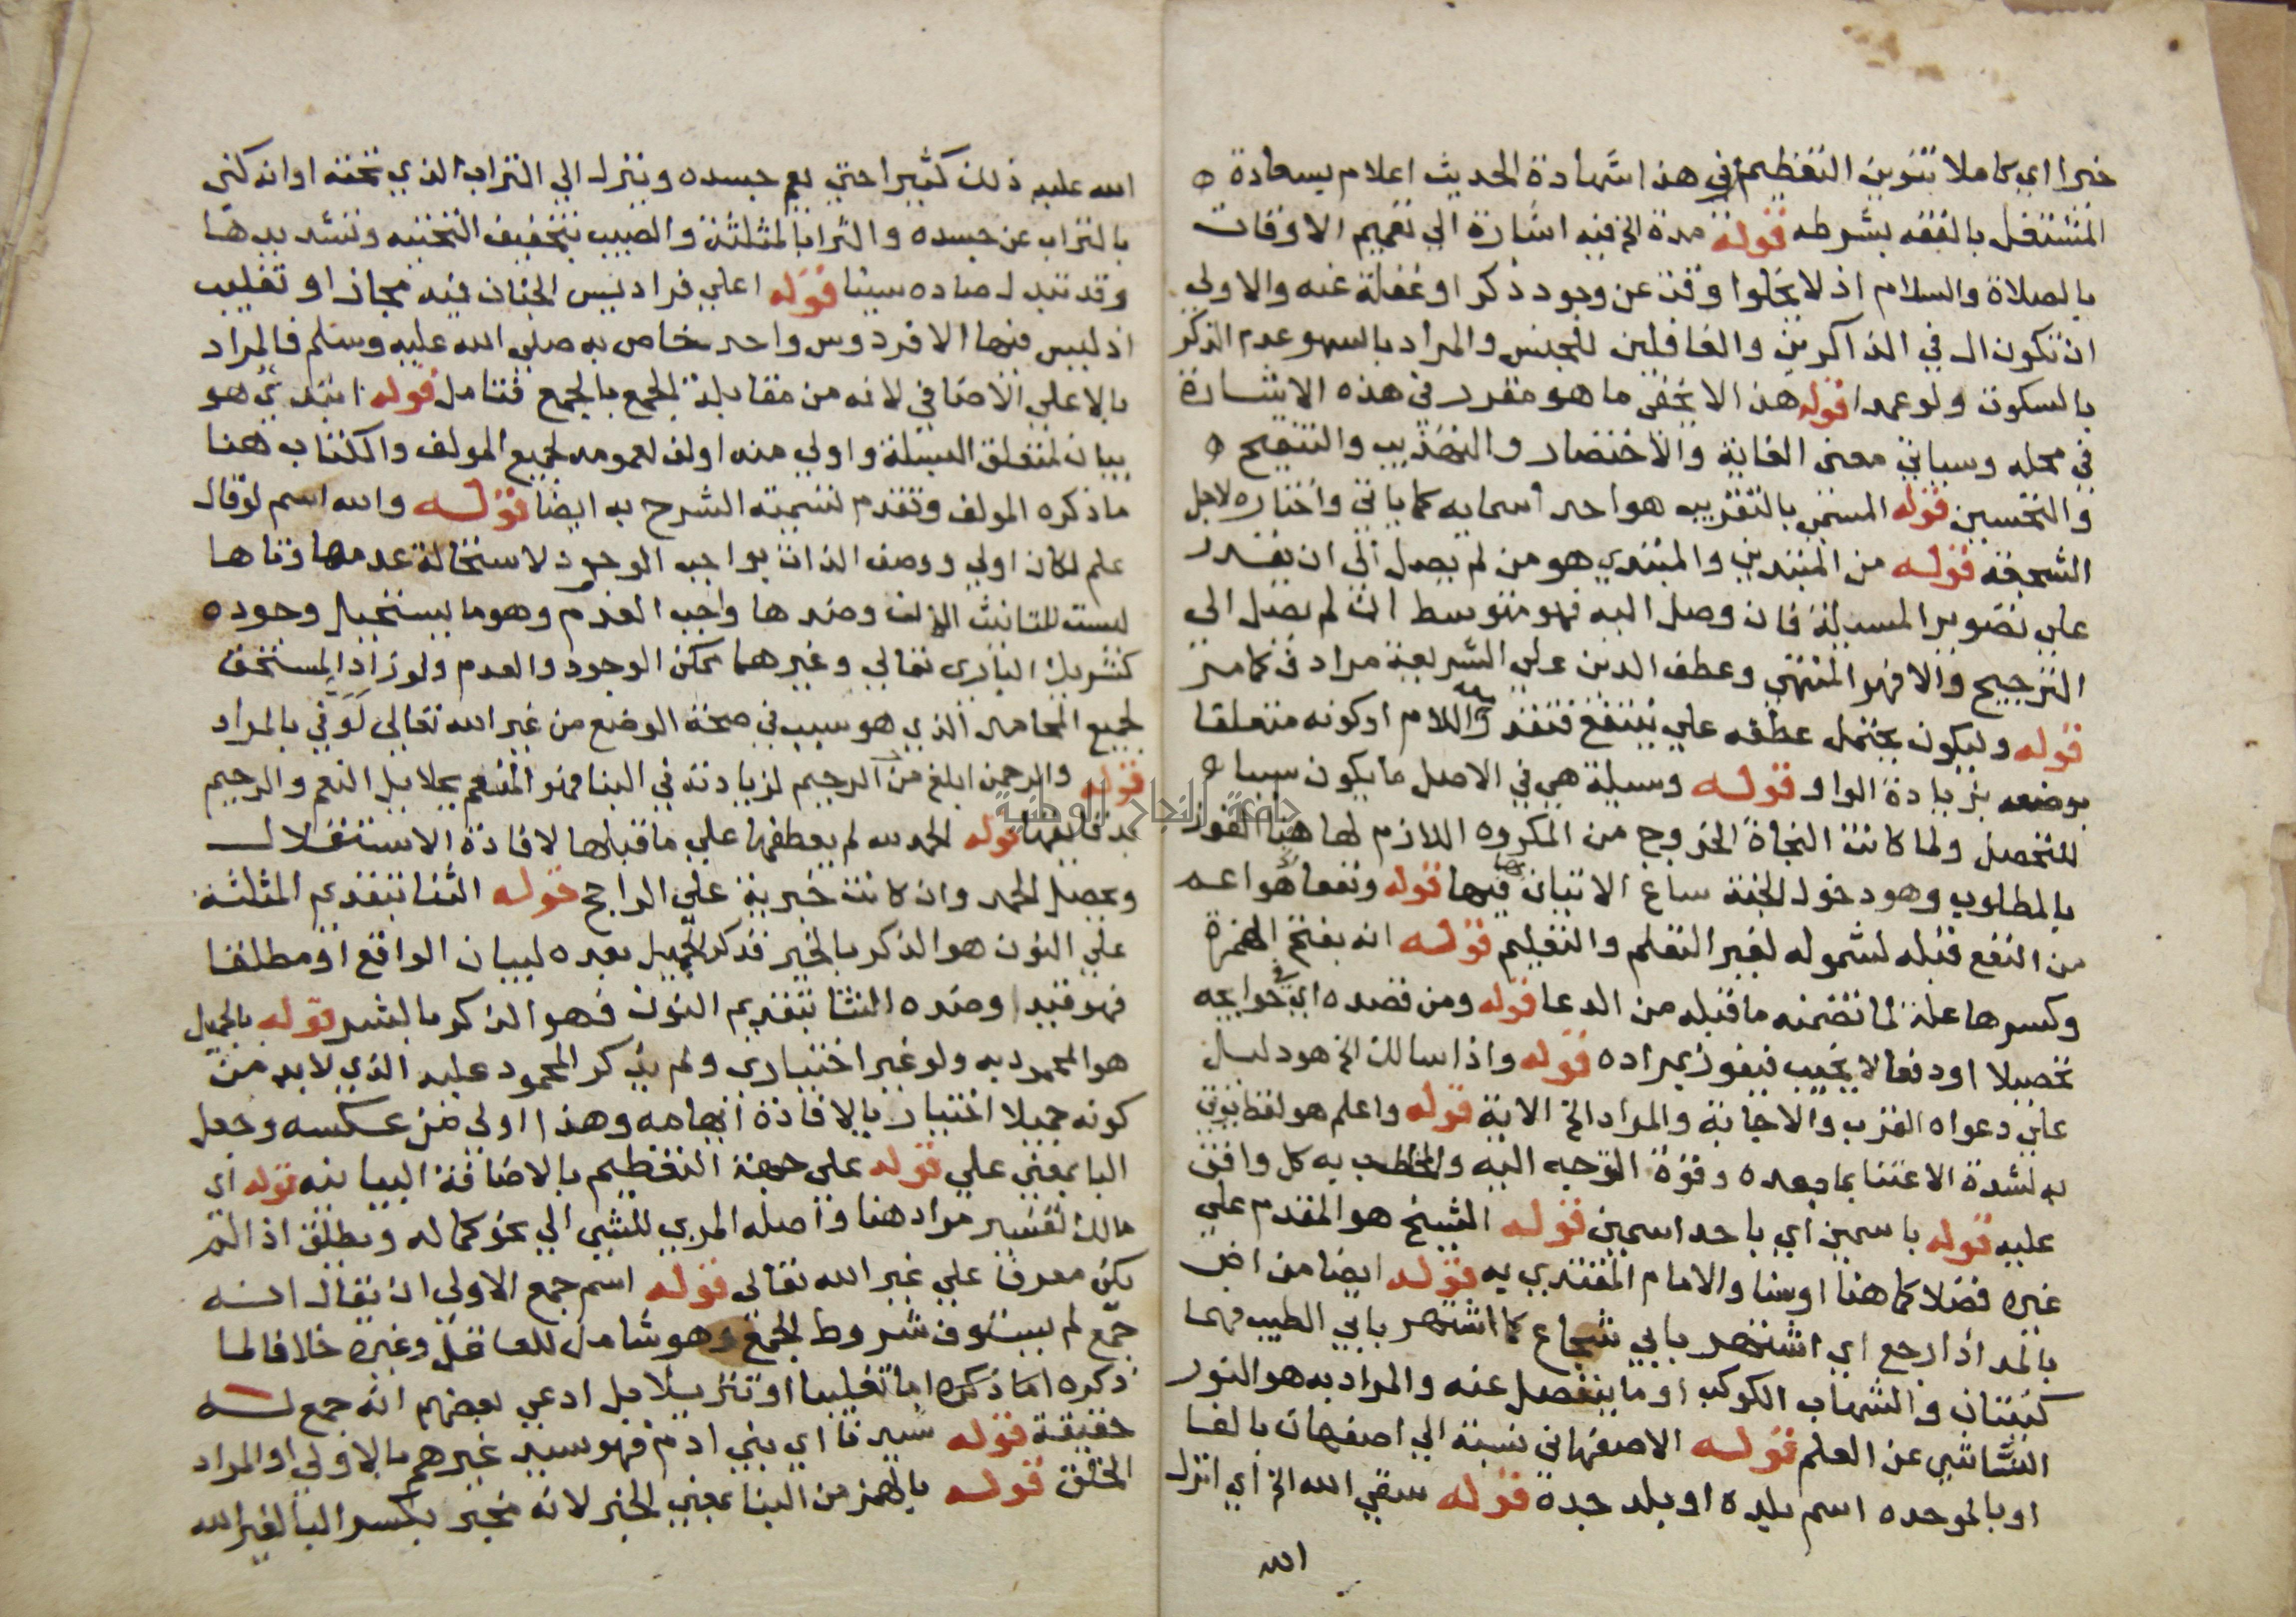 خيرا اي كاملا بتنوين التعظيم في هذا شهادة الحديث اعلام بسعادة
المشتغل بالفقه بشرطه قوله مدة الخ فيه اشارة الي تعميم الاوقات
بالصلاة والسلام اذ لا يخلوا وقت عن وجود ذكر او غفلة عنه والاولي
ان تكون ال في الذاكرين والغافلين للجنس والمراد بالسهو عدم الذكر
بالسكوت ولو عمدا قوله هذا لا يخفي ما هو مقرر في هذه الاشارة
في محله وسياتي معني الغاية والاختصار والتهذيب والتنقيح
والتحسين قوله المسمي بالتقريب هو احد اسمايه كما ياتي واختاره لاجل
الشجعة قوله من المبتديين والمبتدي هو من لم يصل الي ان يقدر
علي تصوير المسيلة فان وصل اليه فهو متوسط ان لم يصل الي
الترجيح والا فهو المنتهي وعطف الدين علي الشريعة مرادف كما مر
قوله وليكون يحتمل عطفه علي ينتفع فتقدر اللام او كونه متعلقا
بوضعه بزيادة الواو قوله وسيلة هي في الاصل ما يكون سببا
للتحصيل ولما كانت النجاة الخروج من المكروه اللازم لها هنا الفوز
بالمطلوب وهو دخول الجنة ساغ الاتيان بها فيها قوله ونفعا هو اعم
من النفع قبله لشموله لغير التعلم والتعليم قوله انه بفتح الهمزة
وكسرها علة لما تضمنه ما قبله من الدعا قوله ومن قصده اي في حوايجه
تحصيلا او دفعا لا يخيب فيفوز بمراده قوله واذا سالك الخ هو دليل
علي دعواه القرب والاجابة والمراد الخ الاية قوله واعلم هو لفظ يوتي
به لشدة الاعتنا بما بعده وقوة التوجه اليه والمخاطب به كل واقف
عليه قوله باسمين اي باحد اسمين قوله الشيخ هو المقدم علي
غيره فضلا كما هنا او سنا والامام المقتدي به قوله ايضا من اض
بالمد اذا رجع اي اشتهر بابي شجاع كما اشتهر بابي الطيب فهما
كنيتان والشهاب الكوكب او ما ينفصل عنه والمراد به هو النور
الناشي عن العلم قوله الاصفهاني نسبة الي اصفهان بالفا
او بالموحده اسم بلدة او بلد جده قوله سقي الله الخ اي انزل
الله
الله عليه ذلك كثيرا حتي يعم جسده وينزل الي التراب الذي تحته او انه كني
بالتراب عن جسده والثرا بالمثلثة والصيب بتخفيف التحتيه وتشديدها
وقد تبدل صاده سينا قوله اعلي فراديس الجنان فيه مجاز او تغليب
اذ ليس فيها الا فردوس واحد خاص به صلي الله عليه وسلم فالمراد
بالاعلي الاضافي لانه من مقابلة الجمع بالجمع فتامل قوله ابتدي هو
بيان لمتعلق البسملة واولي منه اولف لعمومه لجميع المولف والكتاب هنا
ما ذكره المولف وتقدم تسمية الشرح به ايضا قوله والله اسم لو قال
علم لكان اولي ووصف الذات بواجب الوجود لاستحالة عدمها وتاها
ليست للتانيث وضدها واجب العدم وهو ما يستحيل وجوده
كشريك الباري تعالي وغيرهما ممكن الوجود والعدم ولو زاد المستحق
لجميع المحامد الذي هو سبب في صحة الوضع من غير الله تعالي لوفي بالمراد
قوله والرحمن ابلغ من الرحيم لزيادته في البنا فهو المنعم بجلايل النعم والرحيم
بدقايقها قوله الحمد لله لم يعطفها علي ما قبلها لافادة الاستقلال
ويحصل الحمد وان كانت خبرية علي الراجح قوله الثنا بتقديم المثلثة
علي النون هو الذكر بالخير فذكر الجميل بعده لبيان الواقع او مطلقا
فهو قيد وضده النثا بتقديم النون فهو الذكر بالشر قوله بالجميل
هو المحمود به ولو غير اختياري ولم يذكر المحمود عليه الذي لا بد من
كونه جميلا اختيار يا لافادة ابهامه وهذا اولي من عكسه وجعل
البا بمعني علي قوله علي جهة التعظيم بالاضافة البيانيه قوله اي
مالك تفسير مراد هنا واصله المربي للشي الي نحو كماله ويطلق اذا لم
يكن معرفا علي غير الله تعالي قوله اسم جمع الاولي ان يقال انه
جمع لم يستوف شروط الجمع وهو شامل للعاقل وغيره خلافا لما
ذكره اما ذكره اما تغليبا او تنزيلا بل ادعي بعضهم انه جمع له
حقيقة قوله سيدنا اي بني ادم فهو سيد غيرهم بالاولي او المراد
الخلق قوله بالهمز من النبا بمعني الخبر لانه مخبر بكسر البا لغير الله
جامعة النجاح الوطنية